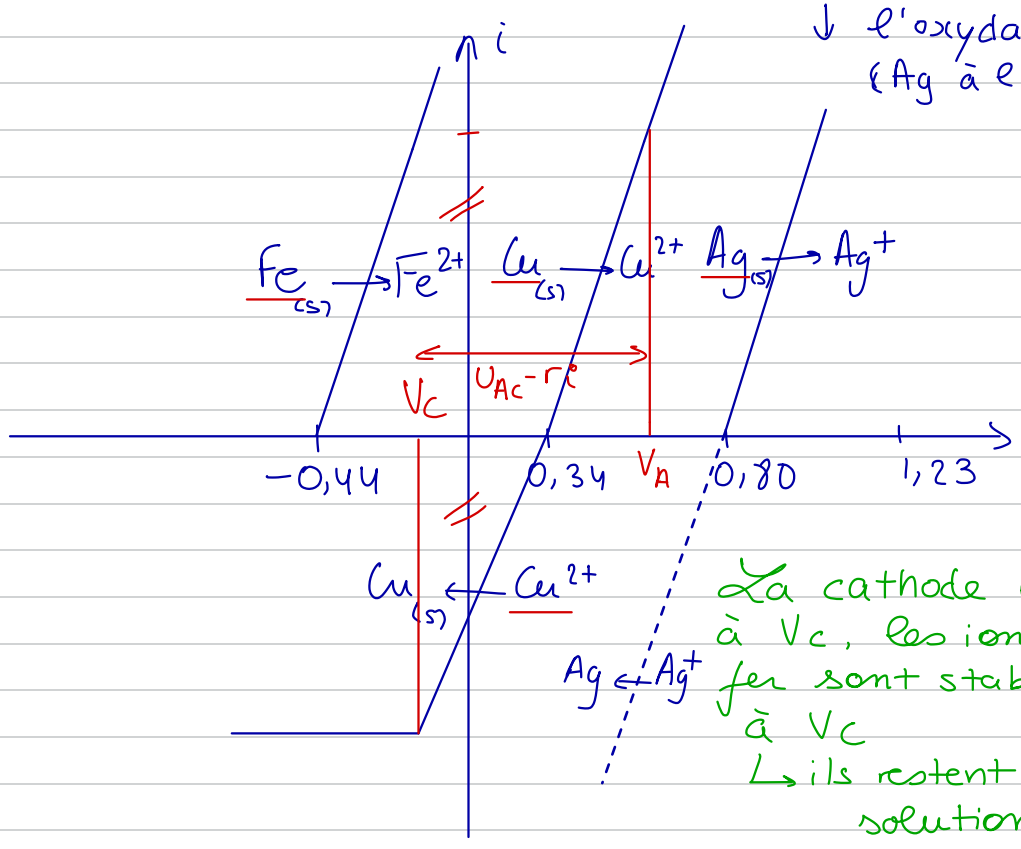 i
↓ l'oxyda
(Ag à l
Fe(s) → Fe²⁺
Cu(s) → Cu²⁺
Ag(s) → Ag⁺
U_AC - ri
V_C
-0,44
0,34
V_A
0,80
1,23
Cu(s) ← Cu²⁺
Ag ← Ag⁺
La cathode
à Vc, les ion
fer sont stab
à Vc
↳ ils restent
solution